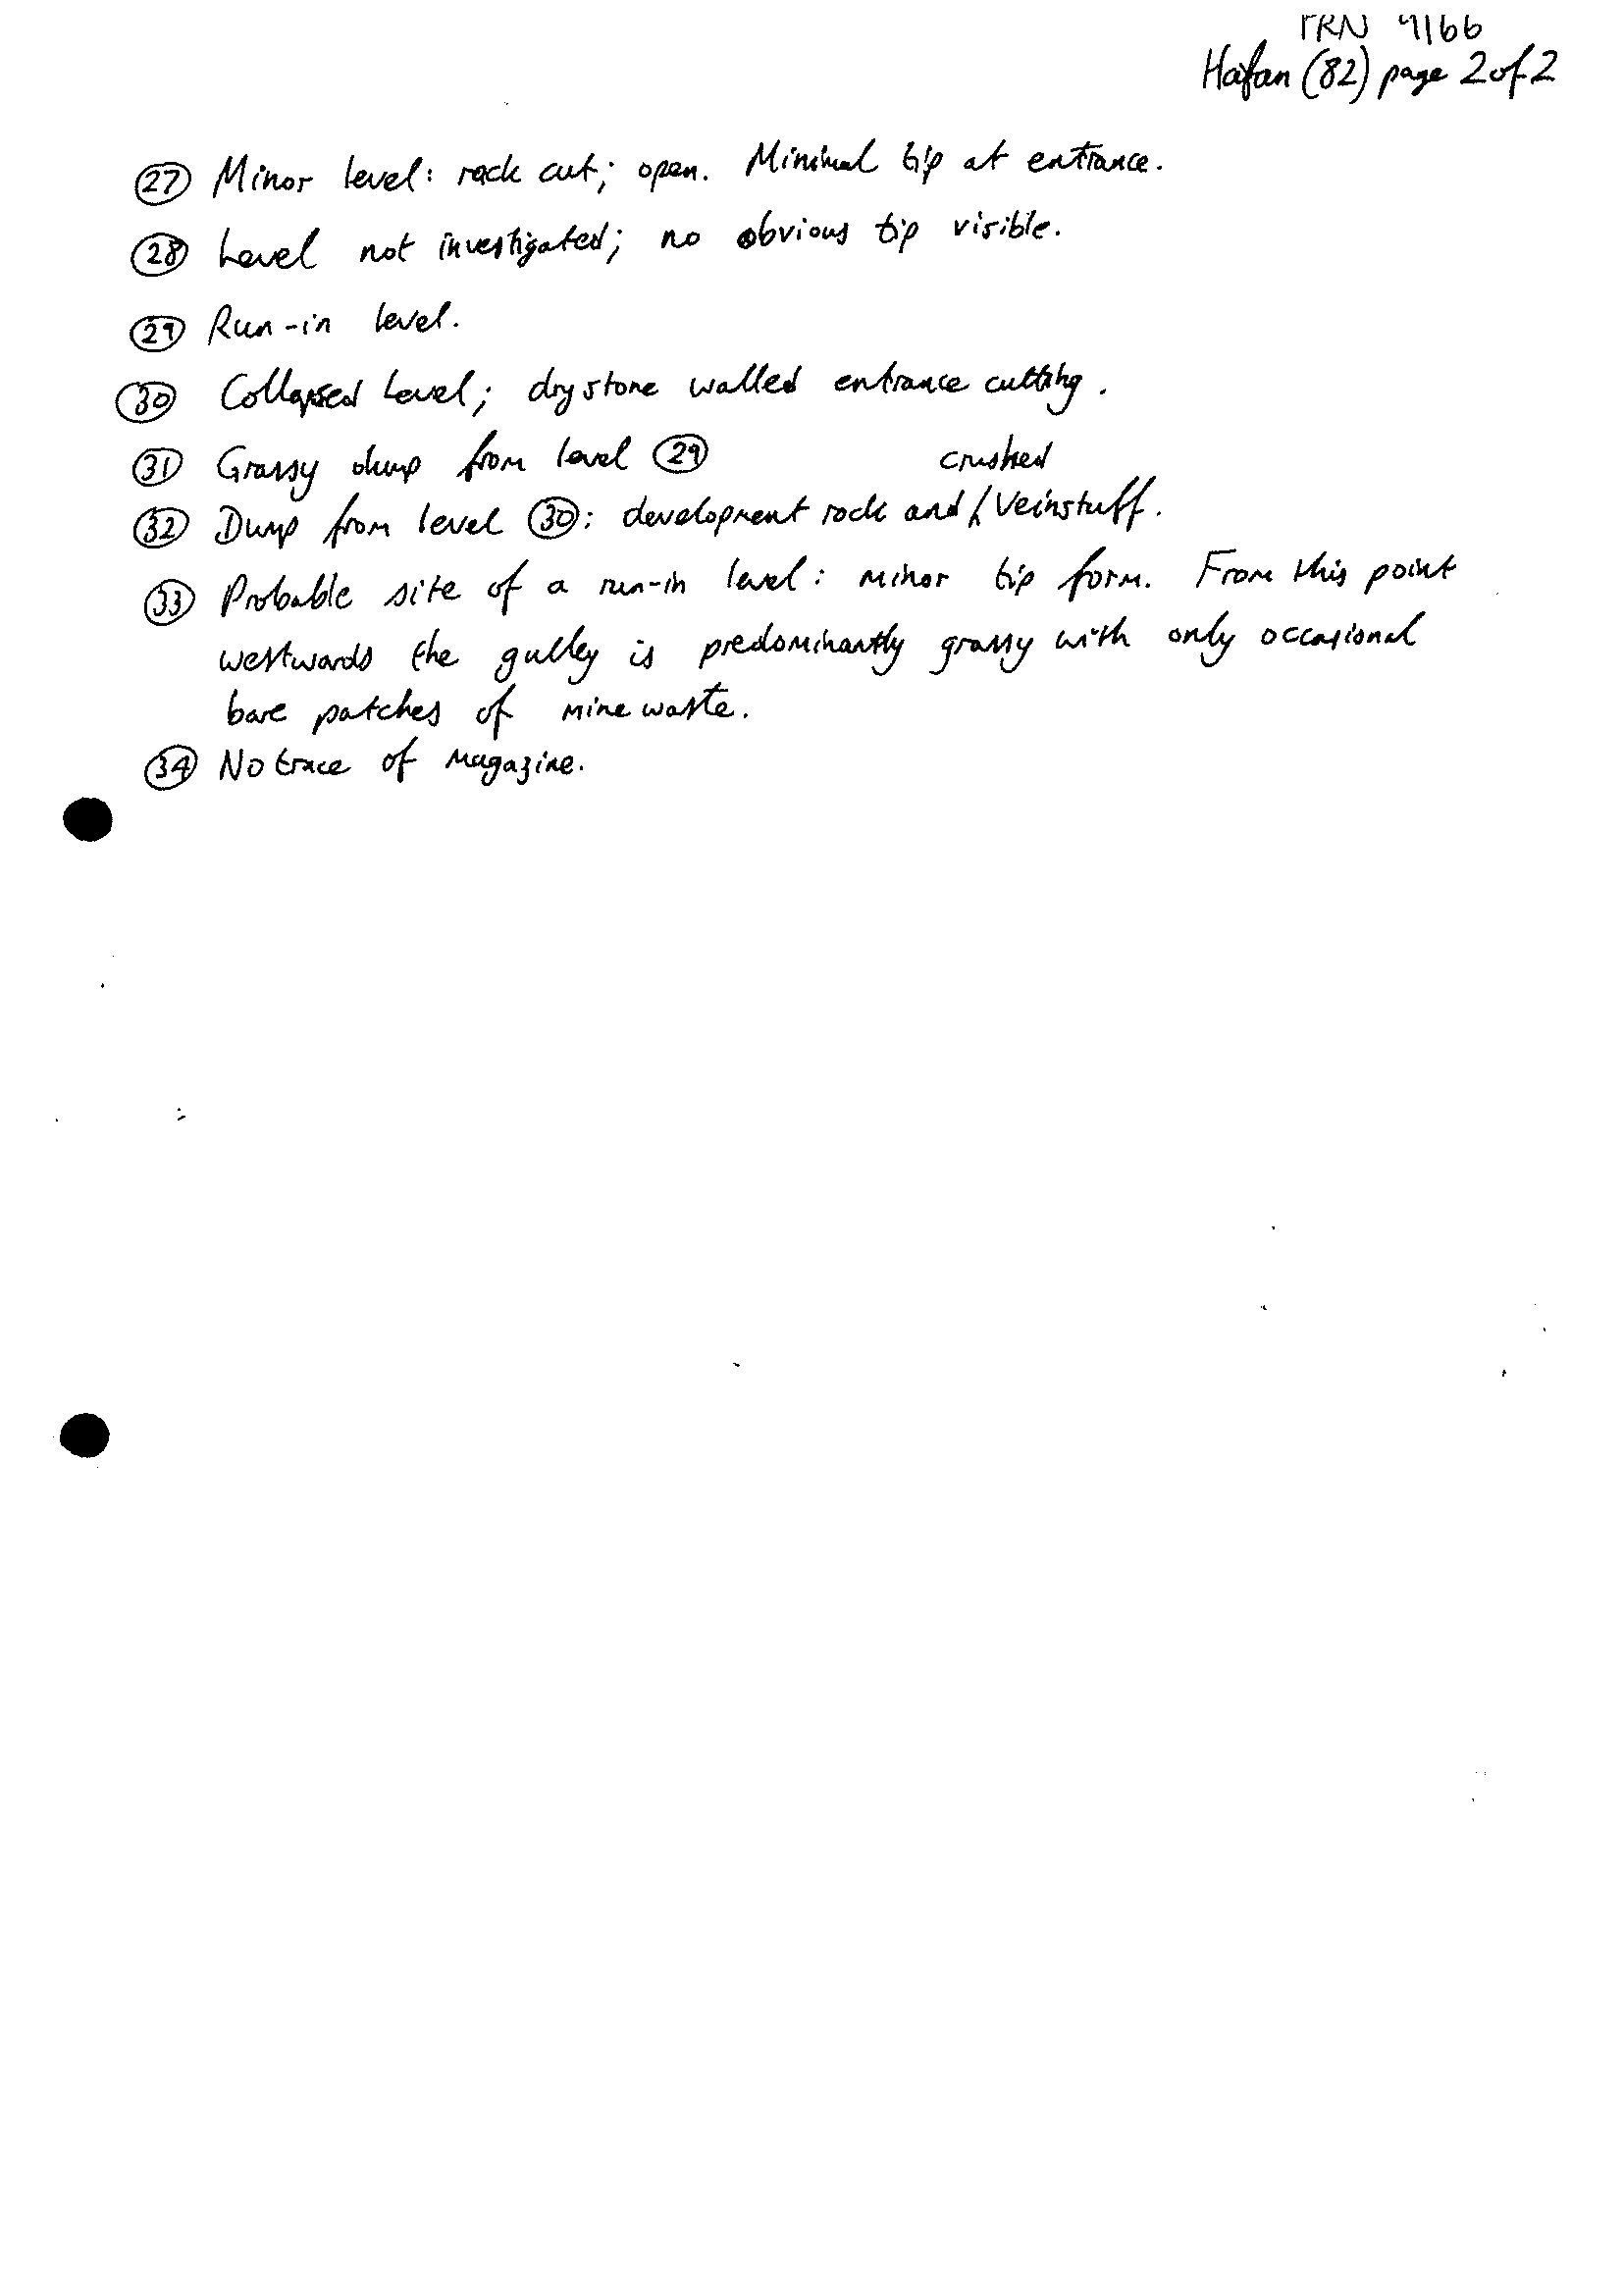 PRN 9166
Hafan (82) page 2 of 2
(27) Minor level: rock cut; open. Minimal tip at entrance.
(28) Level not investigated; no obvious tip visible.
(29) Run-in level.
(30) Collapsed Level; drystone walled entrance cutting.
(31) Grassy dump from level (29)
(32) Dump from level (30): development rock and crushed Veinstuff.
(33) Probable site of a run-in level: minor tip form. From this point
westwards the gulley is predominantly grassy with only occasional
bare patches of mine waste.
(34) No trace of Magazine.